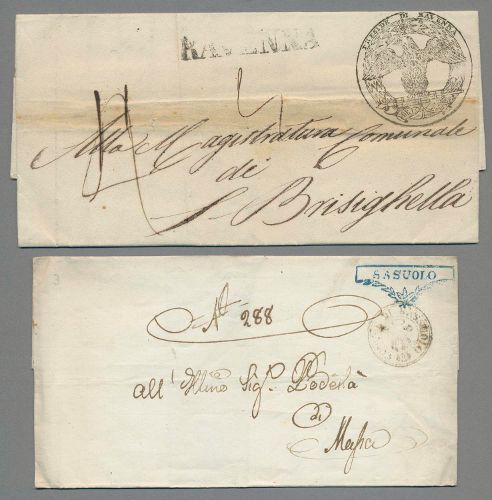 RAVENNA
PRESIDE DI RAVENNA
Alla Magistratura Comunale
di
Brisighella
3
SASUOLO
N° 288
all' Illmo Sigr Podestà
di
Massa